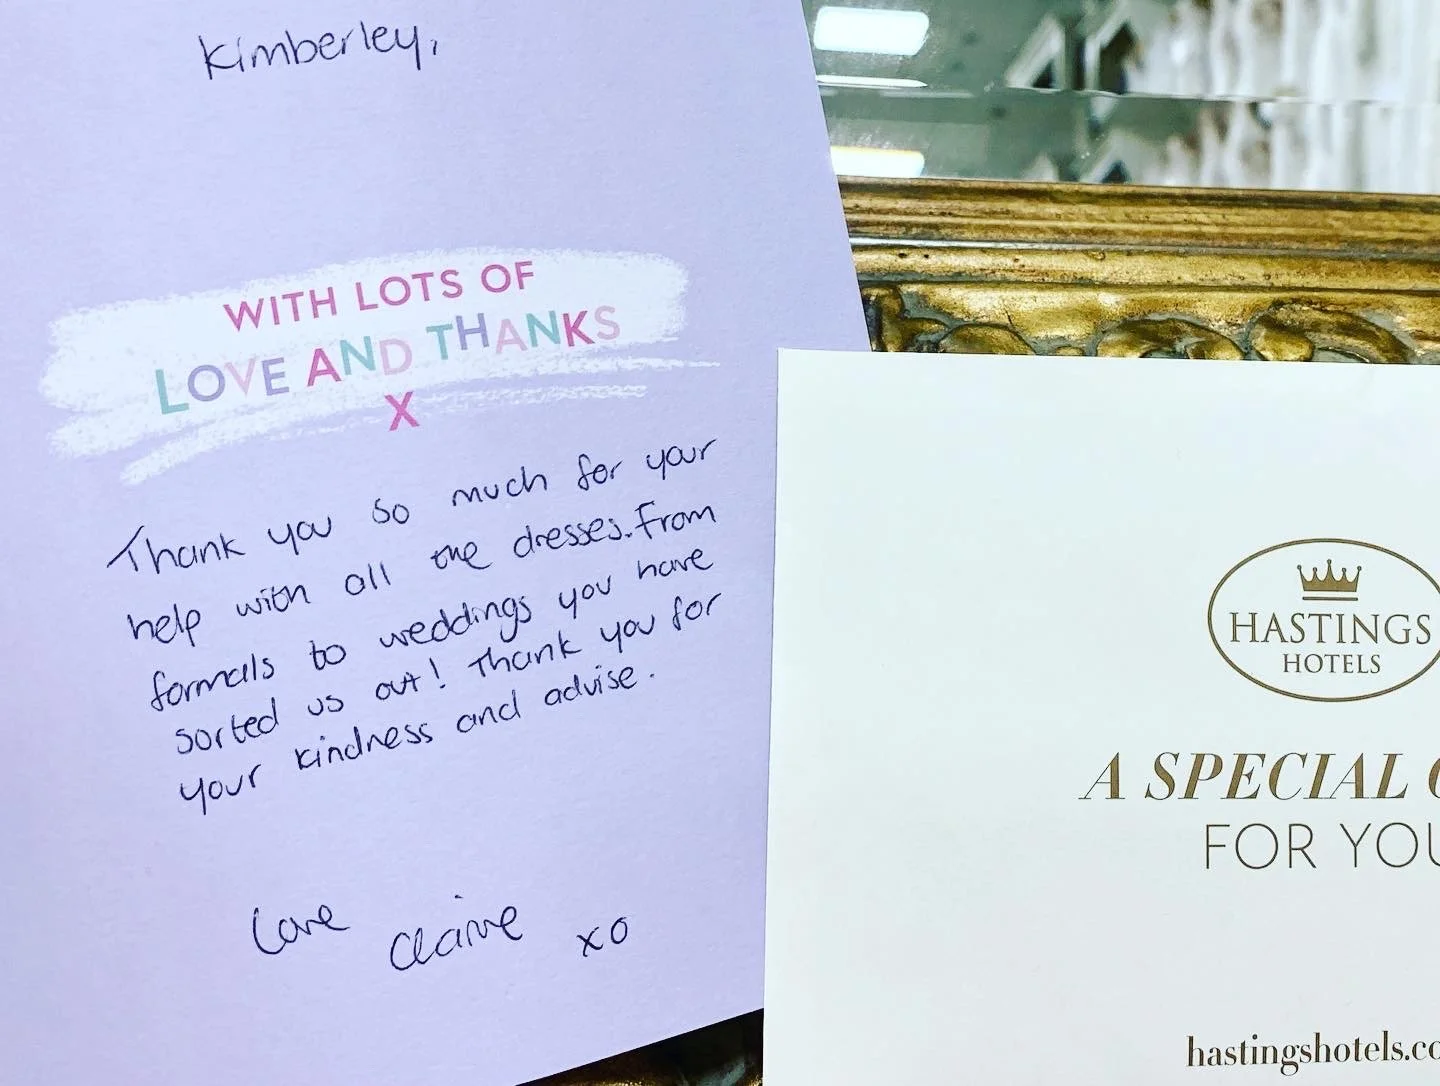 Kimberley,
WITH LOTS OF
LOVE AND THANKS
X
Thank you so much for your
help with all the dresses. From
formals to weddings you have
sorted us out! Thank you for
your kindness and advise.
Love Claire xo
HASTINGS
HOTELS
A SPECIAL
FOR YOU
hastingshotels.co